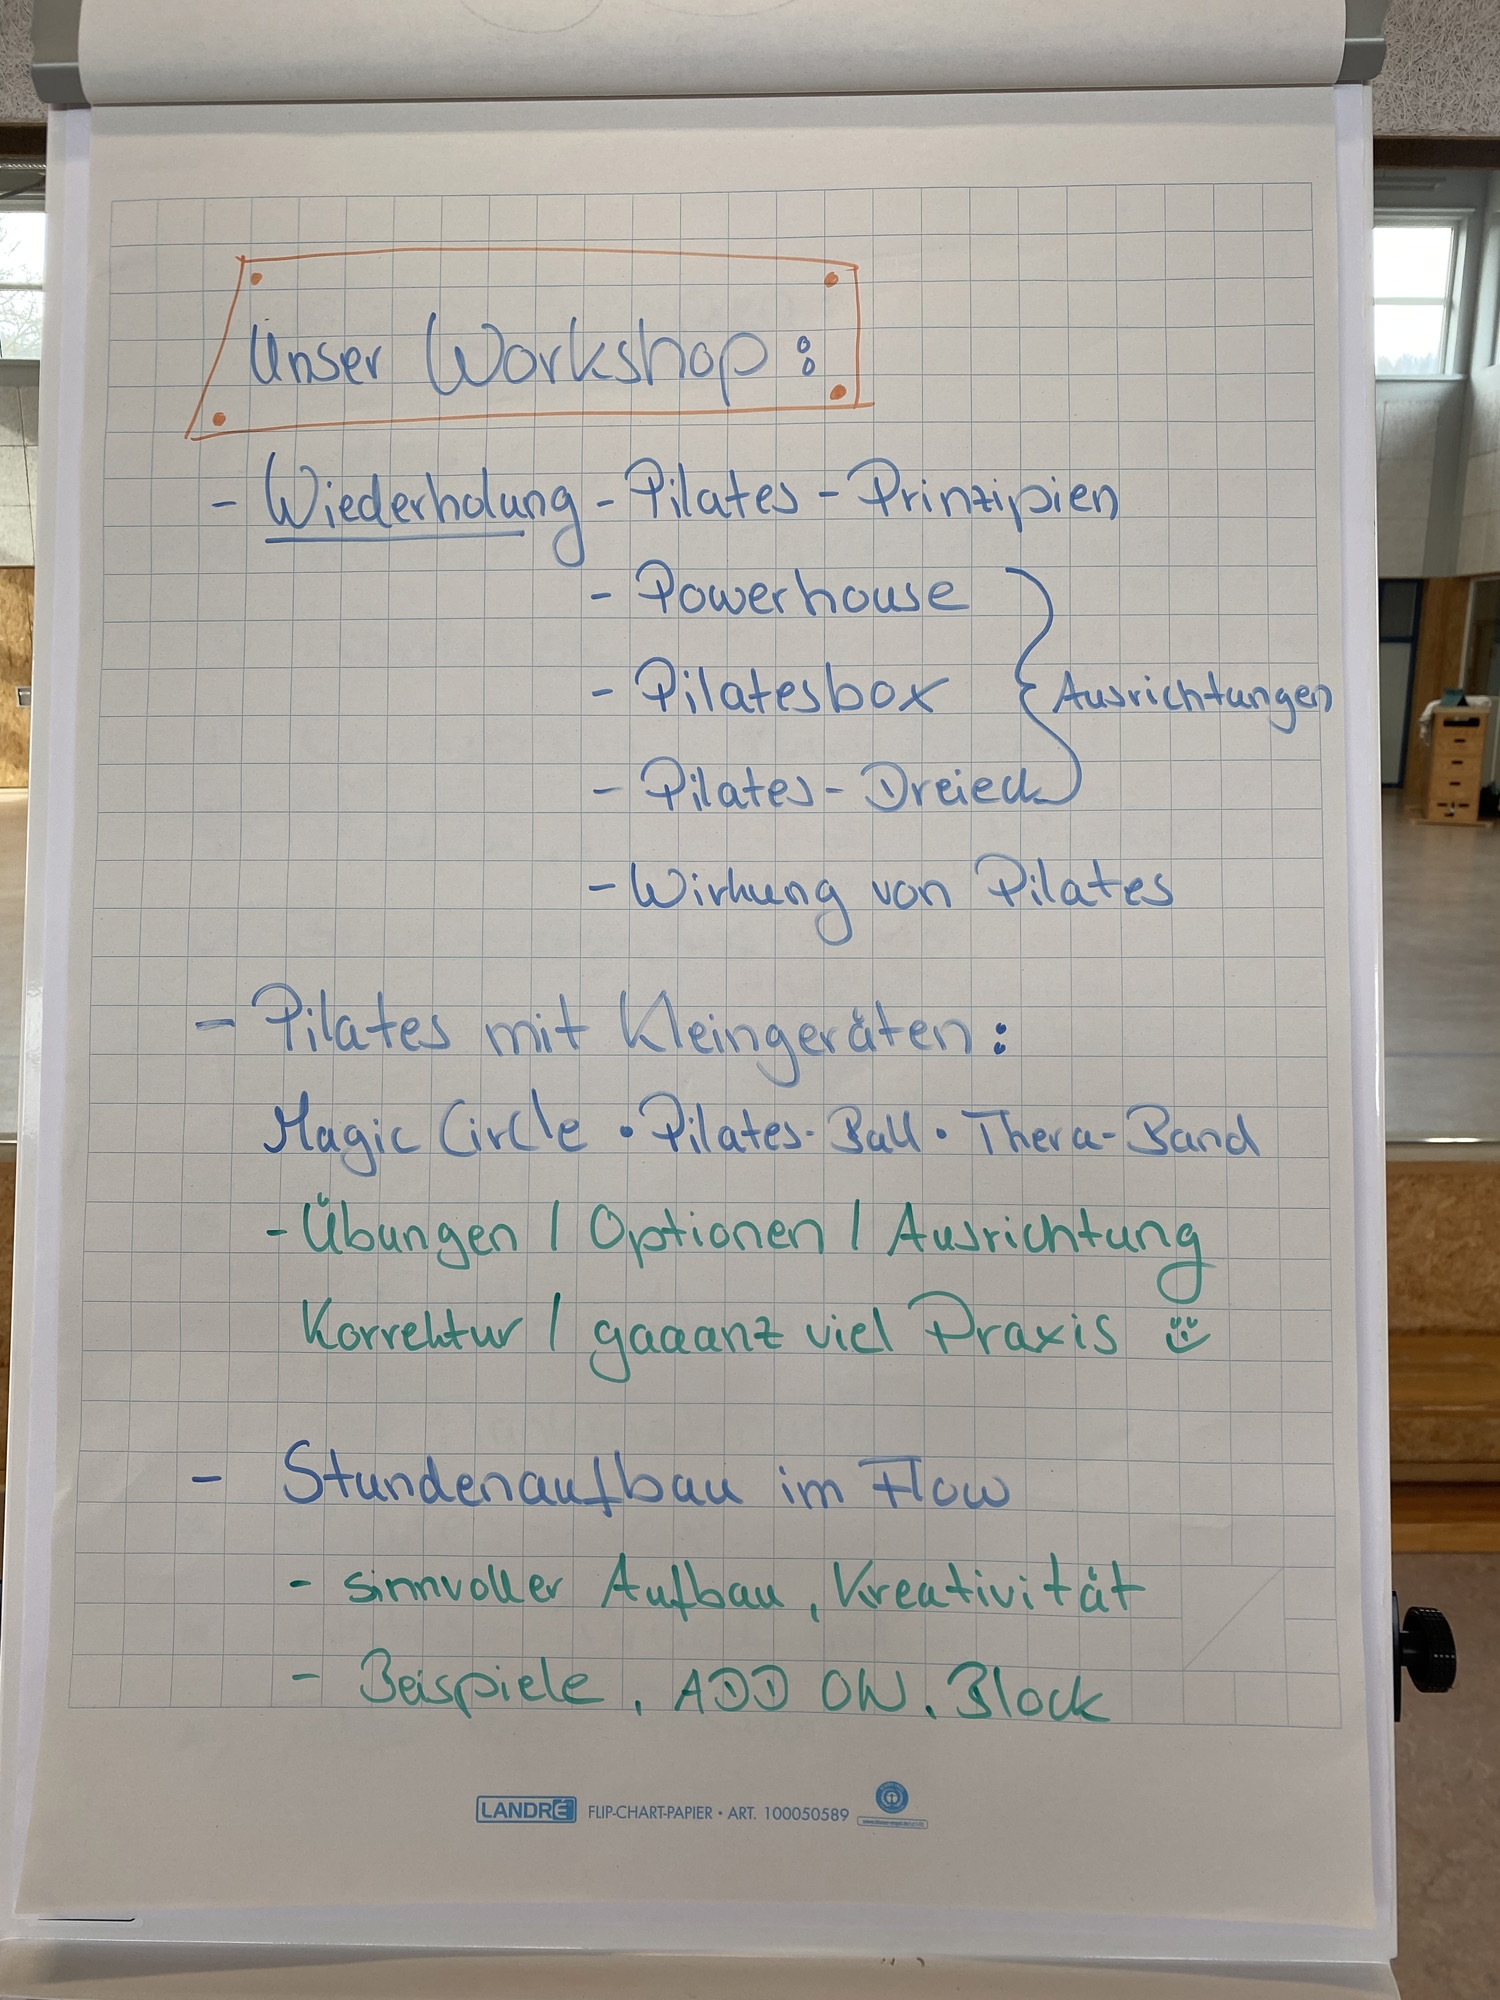 Unser Workshop :
- Wiederholung - Pilates - Prinzipien
- Powerhouse
- Pilatesbox } Ausrichtungen
- Pilates - Dreieck
- Wirkung von Pilates
- Pilates mit Kleingeräten :
Magic Circle • Pilates-Ball • Thera-Band
- Übungen / Optionen / Ausrichtung
Korrektur / gaaanz viel Praxis
- Stundenaufbau im Flow
- sinnvoller Aufbau, Kreativität
- Beispiele, ADD ON, Block
LANDRÉ FLIP-CHART-PAPIER • ART. 100050589